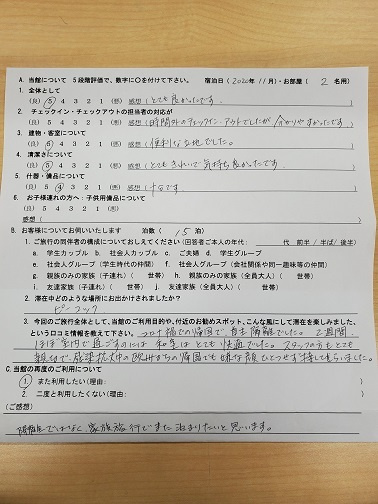 A. 当館について 5段階評価で、数字に〇を付けて下さい。 宿泊日(2020年 11月)・お部屋( 2 名用)
1. 全体として
(良) 5 4 3 2 1 (悪) 感想(とても良かったです。)
2. チェックイン・チェックアウトの担当者の対応が
(良) 5 4 3 2 1 (悪) 感想(時間外のチェックイン・アウトでしたが 分かりやすかったです。)
3. 建物・客室について
(良) 5 4 3 2 1 (悪) 感想(便利な立地でした。)
4. 清潔さについて
(良) 5 4 3 2 1 (悪) 感想(とてもきれいで気持ち良かったです)
5. 什器・備品について
(良) 5 4 3 2 1 (悪) 感想(十分です)
6. お子様連れの方へ:子供用備品について
(良) 5 4 3 2 1 (悪)
感想( )
B. お客様についてお伺いいたします 泊数( 15 泊)
1. ご旅行の同伴者の構成についておしえてください(回答者ご本人の年代: 代 前半/半ば/後半)
a. 学生カップル b. 社会人カップル c. ご夫婦 d. 学生グループ
e. 社会人グループ(学生時代の仲間) f. 社会人グループ(会社関係や同一趣味等の仲間)
g. 親族のみの家族(子連れ)( 世帯) h. 親族のみの家族(全員大人)( 世帯)
i. 友達家族(子連れ)( 世帯) j. 友達家族(全員大人)( 世帯)
2. 滞在中どのような場所にお出かけされましたか?
3. 今回のご旅行全体として、当館のご利用目的や、付近のお勧めスポット、こんな風にして滞在を楽しみました、
という口コミ情報を教えて下さい。コロナ禍での帰国で、自主隔離でした。2週間
ほぼ室内で過ごすのには 和室は とても快適でした。スタッフの方もとても
親切で、感染拡大中の からの帰国でも嫌な顔ひとつせず接してもらいました。
C. 当館の再度のご利用について
1. また利用したい(理由: )
2. 二度と利用したくない(理由: )
(ご感想)
隔離ではなく、家族旅行でまた泊まりたいと思います。